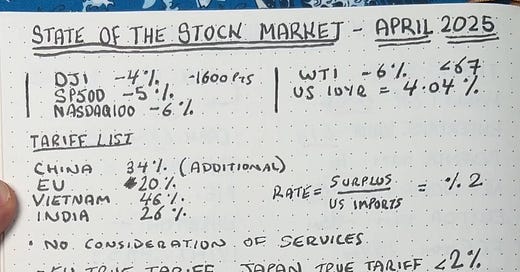 STATE OF THE STOCK MARKET - APRIL 2025
DJI -4% -1600 PTS
SP500 -5%
NASDAQ100 -6%
WTI -6% <67
US 10YR = 4.04%
TARIFF LIST
CHINA 34% (ADDITIONAL)
EU 20%
VIETNAM 46%
INDIA 26%
RATE = SURPLUS / US IMPORTS = % 2
• NO CONSIDERATION OF SERVICES
EU TRUE TARIFF JAPAN TRUE TARIFF <2%